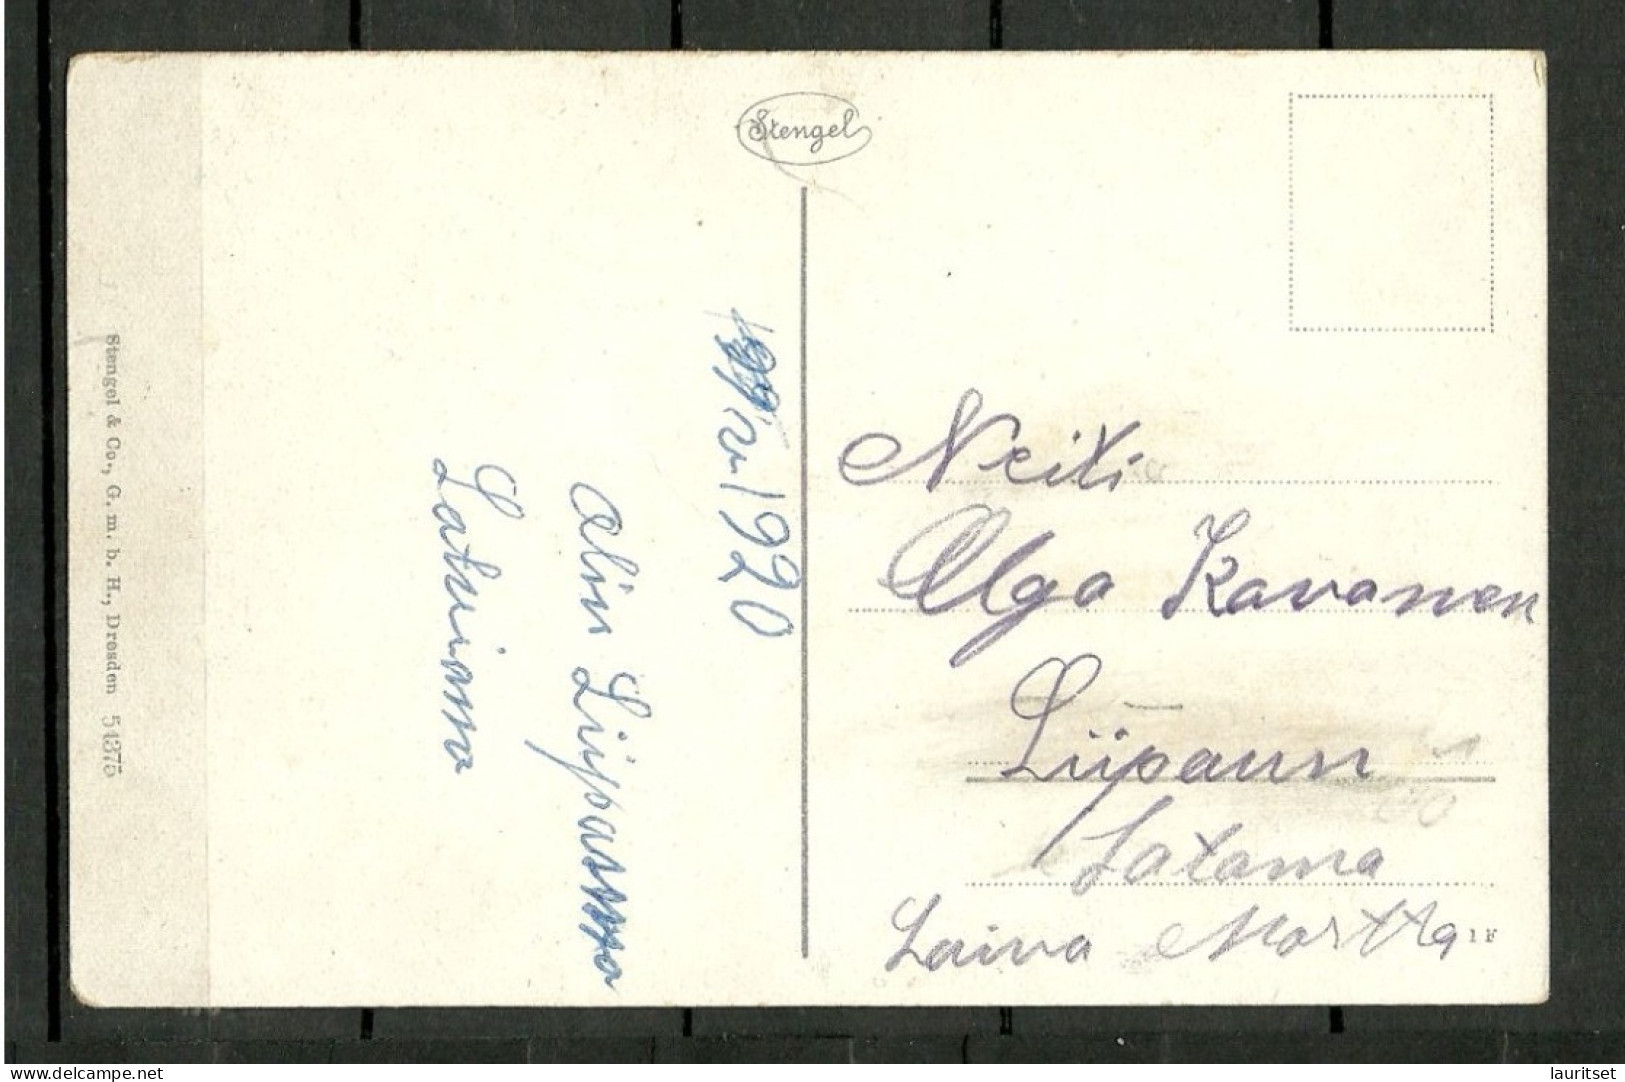 Stengel
Stengel & Co., G. m. b. H., Dresden 54375
1920
Olin Liipassssa
Satuissa
Neiti
Olga Kavanen
Liipaun
Satama
Laiva Martta
1 F
delcampe.net
lauritset